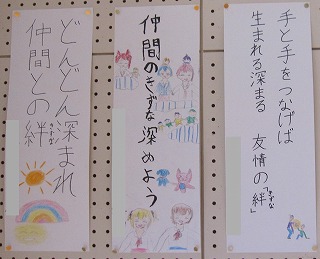 どんどん深まれ
仲間との絆
きずな
仲間のきずな深めよう
手と手をつなげば
生まれる深まる 友情の「絆」
きずな